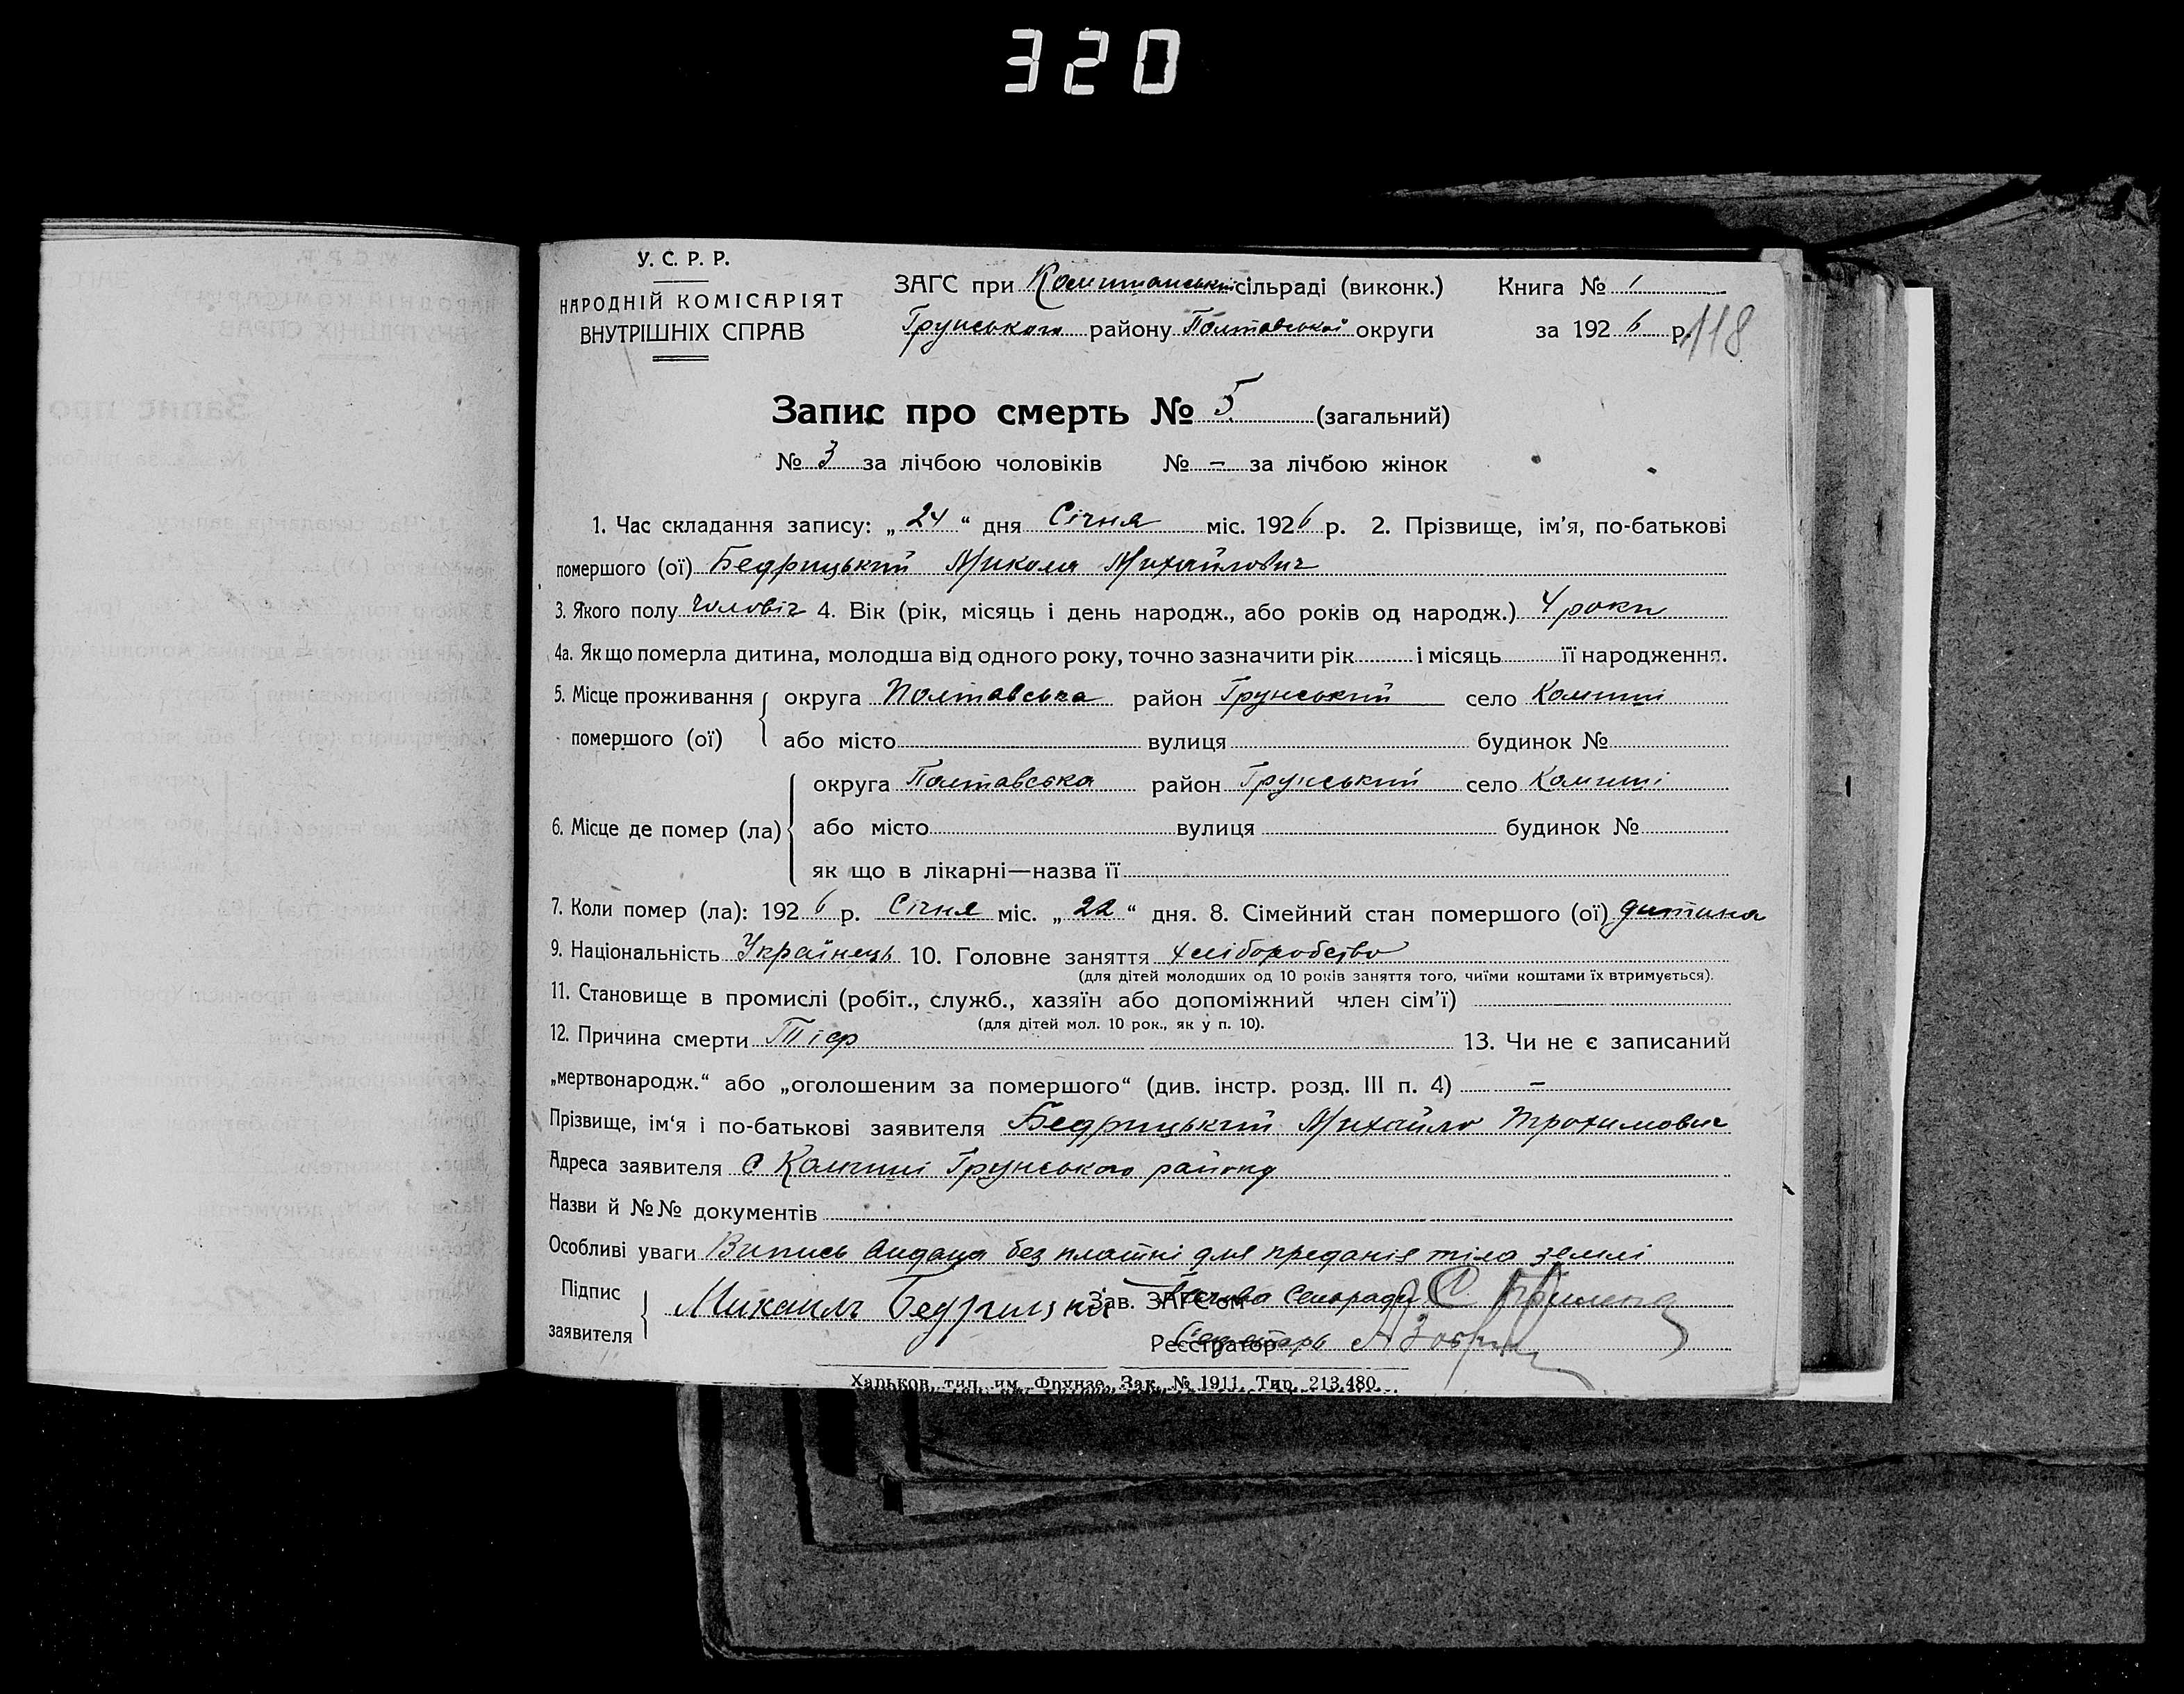 320
У. С. Р. Р.
НАРОДНІЙ КОМІСАРІЯТ
ВНУТРІШНІХ СПРАВ
ЗАГС при Комишанській сільраді (виконк.) Книга № 1
Грунського району Полтавської округи за 1926 р. 118
Запис про смерть № 5 (загальний)
№ 3 за лічбою чоловіків № - за лічбою жінок
1. Час складання запису: „24“ дня Січня міс. 1926 р. 2. Прізвище, ім'я, по-батькові
помершого (ої) Бедрицький Микола Михайлович
3. Якого полу чоловіч 4. Вік (рік, місяць і день народж., або років од народж.) 4 роки
4а. Як що померла дитина, молодша від одного року, точно зазначити рік і місяць її народження.
5. Місце проживання округа Полтавська район Грунський село Комиші
помершого (ої) або місто вулиця будинок №
округа Полтавська район Грунський село Комиші
6. Місце де помер (ла) або місто вулиця будинок №
як що в лікарні—назва її
7. Коли помер (ла): 1926 р. Січня міс. „22“ дня. 8. Сімейний стан помершого (ої) дитина
9. Національність Українець 10. Головне заняття хліборобство
(для дітей молодших од 10 років заняття того, чиїми коштами їх втримується).
11. Становище в промислі (робіт., служб., хазяїн або допоміжний член сім'ї)
(для дітей мол. 10 рок., як у п. 10).
12. Причина смерти Тіф 13. Чи не є записаний
„мертвонародж.“ або „оголошеним за помершого“ (див. інстр. розд. III п. 4) -
Прізвище, ім'я і по-батькові заявителя Бедрицький Михайло Трохимович
Адреса заявителя с Комиші Грунського району
Назви й №№ документів
Особливі уваги Випись видана без платні для преданія тіла землі
Підпис
заявителя Михаилъ Бедрицкий Зав. ЗАГС'ом Голова Сельради
Реєстратор Секретарь
Харьков, тип. им. Фрунзе. Зак. № 1911. Тир. 213.480.